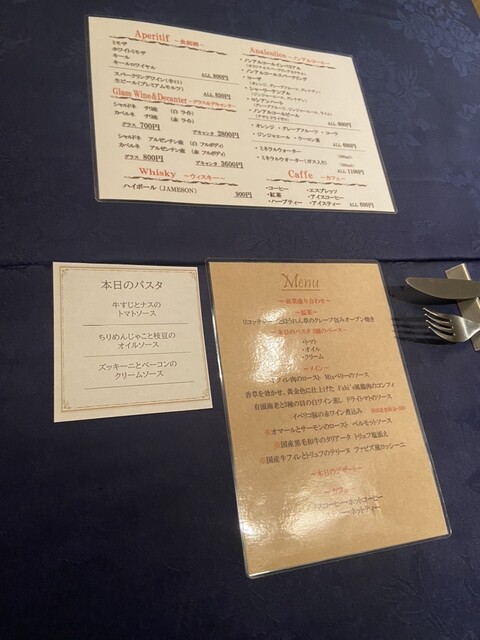 Aperitif ～食前酒～
ミモザ
ホワイトミモザ
キール
キールロワイヤル
ALL 800円
スパークリングワイン(辛口)
生ビール(プレミアムモルツ)
ALL 800円
Glass Wine&Decanter ～グラス&デキャンター～
シャルドネ チリ産 (白 ライト)
カベルネ チリ産 (赤 ライト)
グラス 700円 デキャンタ 2800円
シャルドネ アルゼンチン産 (白 フルボディ)
カベルネ アルゼンチン産 (赤 フルボディ)
グラス 800円 デキャンタ 3600円
Whisky ～ウィスキー～
ハイボール (JAMESON) 900円
Analcolico ～ノンアルコール～
・ノンアルコールスパークリング
・シャーリーテンプル
・ノンアルコールビール
ALL 800円
・オレンジ ・グレープフルーツ ・コーラ
・ジンジャエール ・ウーロン茶
ALL 600円
・ミネラルウォーター
・ミネラルウォーター(ガス入り)
ALL 1100円
Caffe ～カフェ～
・コーヒー ・エスプレッソ
・紅茶 ・アイスコーヒー
・ハーブティー ・アイスティー
ALL 600円
本日のパスタ
牛すじとナスの
トマトソース
ちりめんじゃこと枝豆の
オイルソース
ズッキーニとベーコンの
クリームソース
Menu
～前菜盛り合わせ～
～温菜～
リコッタチーズとほうれん草のクレープ包みオーブン焼き
～本日のパスタ 3種のベース～
・トマト
・オイル
・クリーム
～メイン～
フィレ肉のロースト Mixベリーのソース
香草を効かせ、黄金色に仕上げた Fabi's風鶏肉のコンフィ
有頭海老と3種の貝の白ワイン蒸し ドライトマトのソース
イベリコ豚の赤ワイン煮込み
※オマールとサーモンのロースト ベルモットソース
※国産黒毛和牛のタリアータ トリュフ塩添え
※国産牛フィレとトリュフのテリーヌ ファビズ風ロッシーニ
～本日のデザート～
～カフェ～
コーヒー・ホットコーヒー
ホットティー